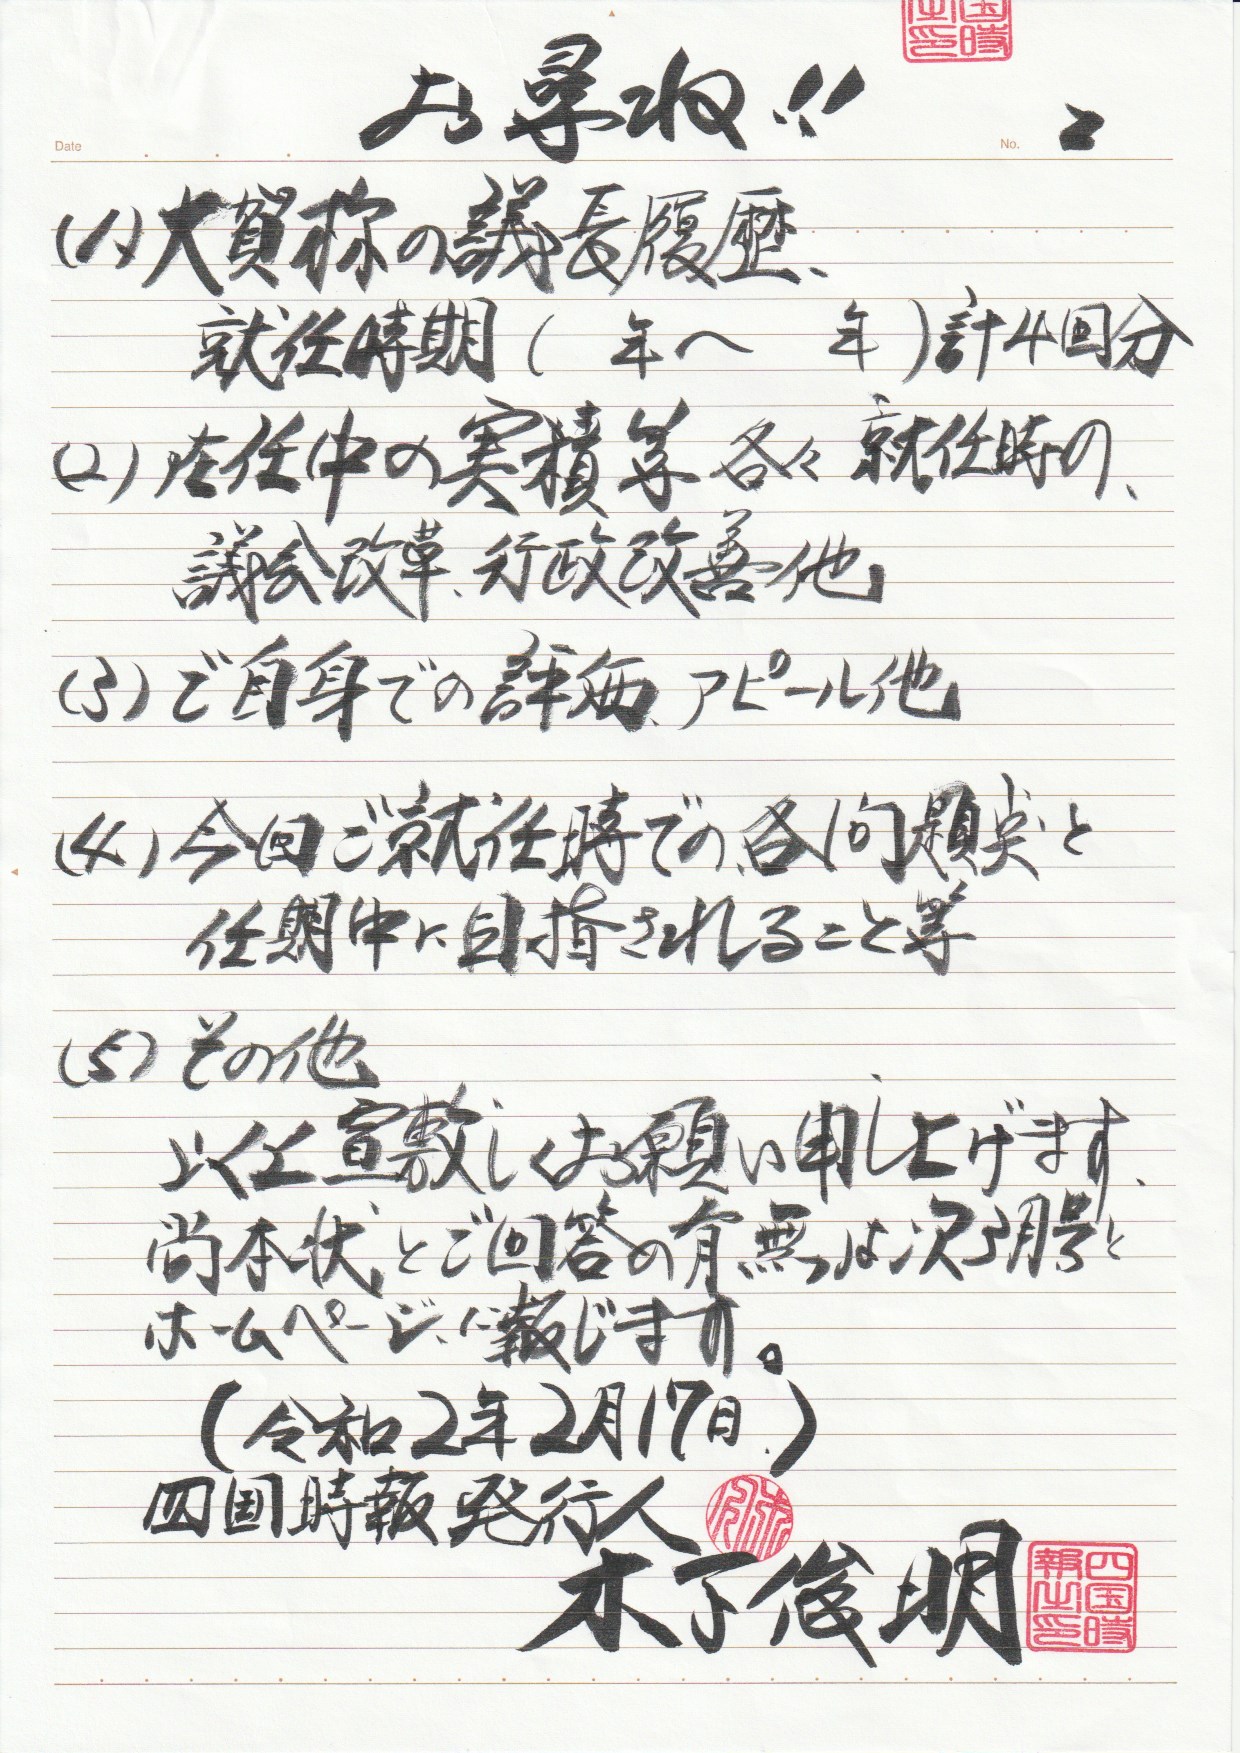 お尋ね!!
Date
No. 2
(1)大賀様の議長履歴、
就任時期(　年へ　年)計4回分
(2)在任中の実積等各々就任時の、
議会改革、行政改善他
(3)ご自身での評価、アピール他
(4)今回ご就任時での、各問題点と
任期中に目指されること等
(5)その他
以上宜敷しくお願い申し上げます、
尚本状とご回答の有無は次3月号と
ホームページ、に報じます。
(令和2年2月17日)
四国時報 発行人
木下俊明
四国時報之印